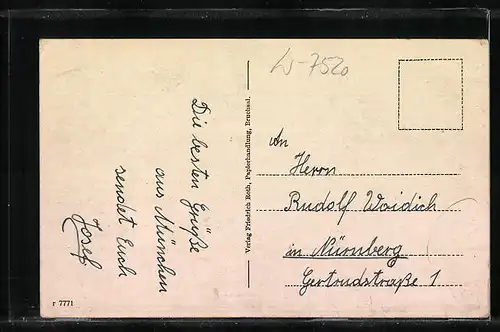 W-7520
Die besten Grüße
aus München
sendet Euch
Josef
Verlag Friedrich Roth, Papierhandlung, Bruchsal.
An
Herrn
Rudolf Waidich
in Nürnberg
Gertrudstraße 1
r 7771